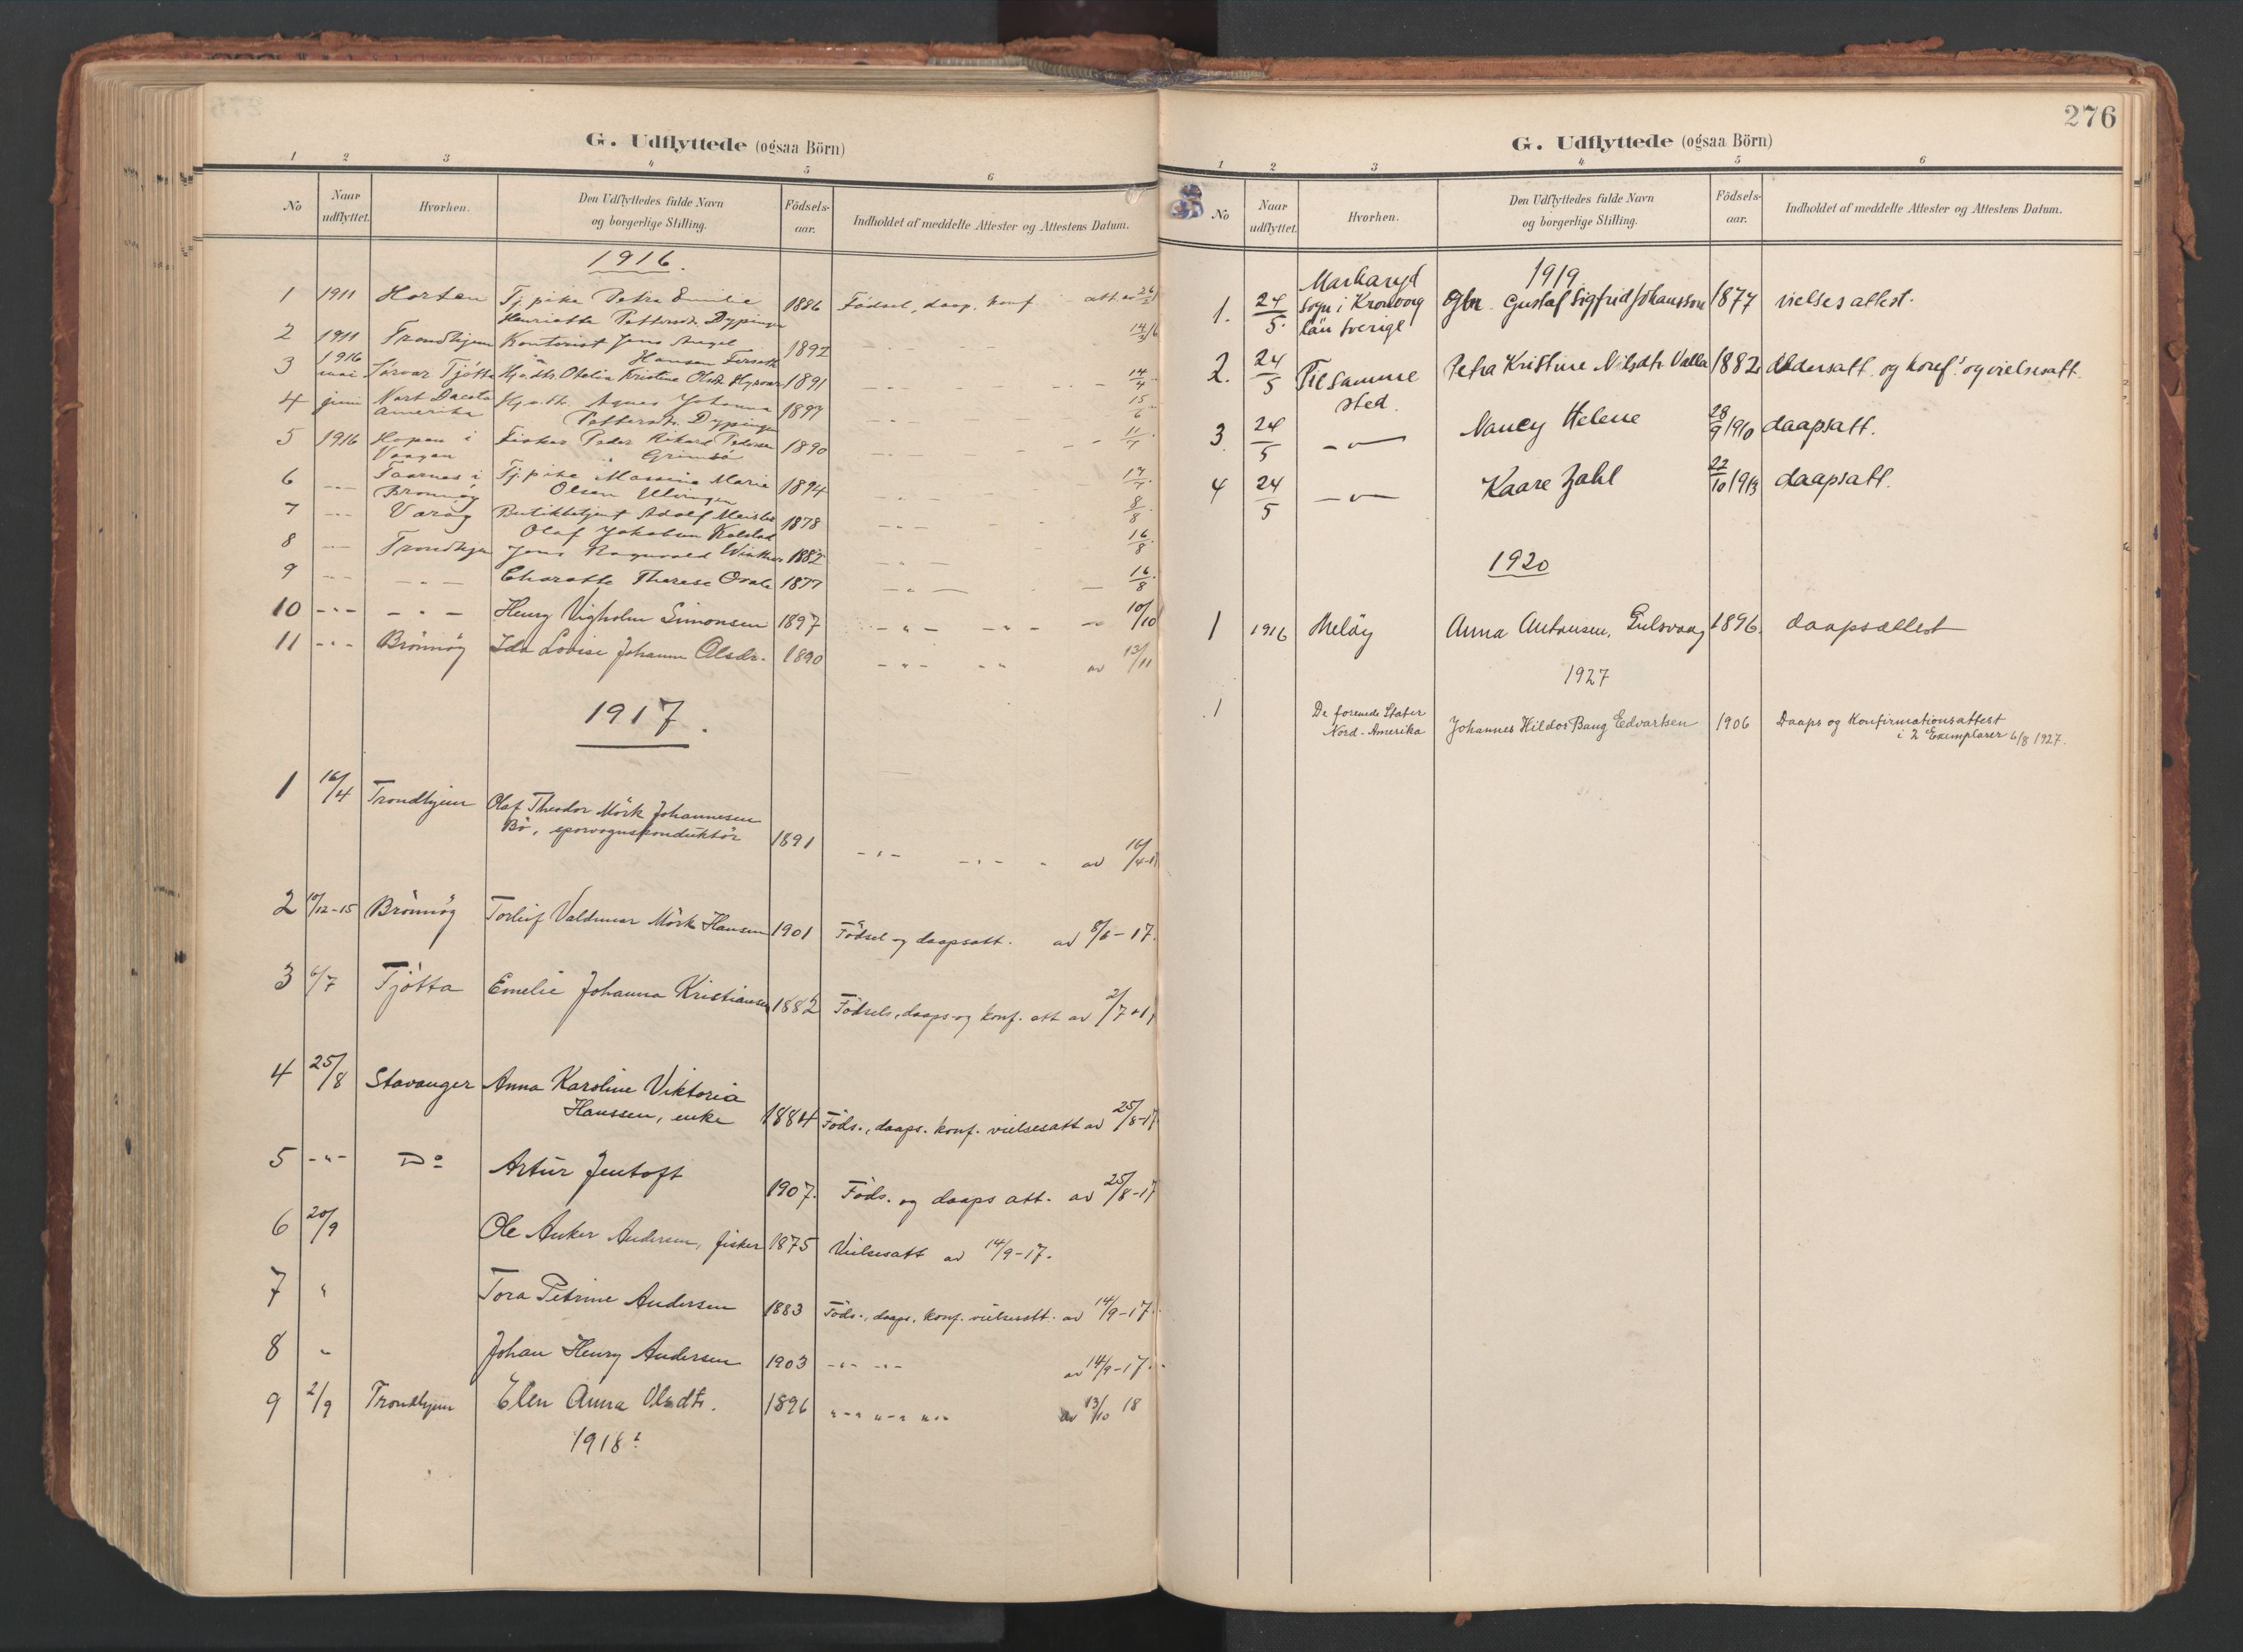 G. Udflyttede (ogsaa Börn)
1 2 3 4 5 6
No
Naar udflyttet.
Hvorhen.
Den Udflyttedes fulde Navn og borgerlige Stilling.
Födsels-aar.
Indholdet af meddelte Attester og Attestens Datum.
1916.
1 1911 Horten Tj. pike Petra Emilie 1886 Födsel, daap, konf att av
Henriette Pettersdt. Dypingen
2 1911 Trondhjem Kontorist Jens Angel 1892 14/3
Hansen Forseth
3 1916 mai Tjötta Kristine Olsdt. 1891 14/4
4 juni Nort Dacota Agnes Johanna 1897 15/6
Amerika Pettersdt. Dypingen
5 1916 Hopen i Fisker Peder Rikard Pedersen 1890 11/7
Vaagan Grimsö
6 - " - i Tj. pike Massina Marie 1894 17/7
Brönnöy Olsen
7 - " - Butikbetjent Adolf 1878 8/8
Olaf Jakobsen Kolstad
8 - " - Trondhjem Jens Ragnvald 1882 16/8
9 - " - - " - Therese 1877 16/8
10 - " - - " - Henry Vigholm Simonsen 1897 - " - - " - 10/10
11 - " - Brönnöy Ida Lovise Johanna Olsdr. 1890 - " - - " - av 13/11
1917.
1 16/4 Trondhjem Olaf Theodor Mörk Johannesen
Bö, sporvognskonduktör 1891 - " - - " - av 16/4-17
2 10/12-15 Brönnöy Torleif Valdemar Mörk Hansen 1901 Födsel og daapsatt. av 8/6-17.
3 6/7 Tjötta Emelie Johanna Kristiansen 1882 Födsels, daaps- og konf. att av 2/7-17
4 25/8 Stavanger Anna Karoline Viktoria
Hanssen, enke 1884 Föds., daaps. konf. vielsesatt av 25/8-17
5 - " - Do Artur Jentoft 1907. Föds. og daaps att. av 25/8-17
6 20/9 Ole Anker Andersen, fisker 1875 Vielsesatt av 14/9-17.
7 " Tora Petrine Andersen 1883 Föds., daaps, konf. vielsesatt. av 14/9-17.
8 " Johan Henry Andersen 1903 - " - - " - av 14/9-17.
9 2/9 Trondhjem Elen Anna Olsdtr. 1896 " - " " - " " - av 13/10 18
1918:
276
G. Udflyttede (ogsaa Börn)
1 2 3 4 5 6
No
Naar udflyttet.
Hvorhen.
Den Udflyttedes fulde Navn og borgerlige Stilling.
Födsels-aar.
Indholdet af meddelte Attester og Attestens Datum.
1919.
Markaryd
1. 24/5. Sogn i Kronborg Gbr. Gustaf Sigfrid Johansson 1877 vielsesattest.
län Sverige
2. 24/5 Til samme Petra Kristine Nilsdtr Valla 1882 Aldersatt. og konf. og vielsesatt.
sted.
3 24/5 - " - Nancy Helene 28/9 1910 daapsatt.
4 24/5 - " - Kaare Zahl 22/10 1913 daapsatt.
1920
1 1916 Melöy Anna Antonsen, 1896. daapsattest
1927
1 De forenede Stater Johannes Hildor Bang Edvartsen 1906 Daaps og Konfirmationsattest
Nord-Amerika i 2 Exemplarer 6/8 1927.